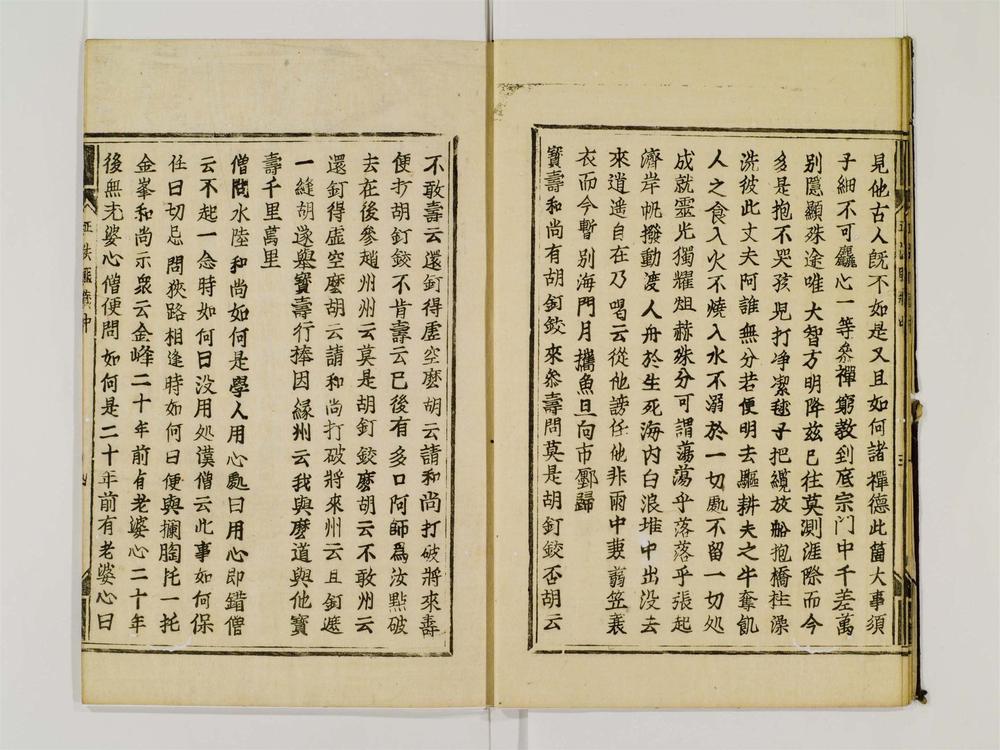 見他古人旣不如是又且如何諸禪德此箇大事須
子細不可麤心一等叅禪窮教到底宗门中千差萬
別隱顯殊途唯大智方明降兹已往莫測涯際而今
多是抱不哭孩兒打净潔毬子把纜放船抱橋柱澡
洗彼此丈夫阿誰無分若便明去驅耕夫之牛奪飢
人之食入火不燒入水不溺於一切處不留一切処
成就靈光獨耀烜赫殊分可謂蕩蕩乎落落乎張起
濟岸帆撥動渡人舟於生死海内白浪堆中出没去
來逍遥自在乃喝云從他謗任他非雨中蓑翦笠裏
衣而今暫別海門月攜魚旦向市鄽歸
寶壽和尚有胡釘鉸來叅壽問莫是胡釘鉸否胡云
不敢壽云還釘得虛空麽胡云請和尚打破將來壽
便打胡釘鉸不肯壽云已後有多口阿師爲汝點破
去在後參趙州州云莫是胡釘鉸麽胡云不敢州云
還釘得虛空麽胡云請和尚打破將來州云且釘遮
一縫胡遂舉寶壽行捧因縁州云我與麽道與他寶
壽千里萬里
僧問水陸和尚如何是學人用心處曰用心即錯僧
云不起一念時如何曰没用処漢僧云此事如何保
任曰切忌問狹路相逢時如何曰便與攔胸托一托
金峯和尚示衆云金峰二十年前有老婆心二十年
後無老婆心僧便問如何是二十年前有老婆心曰